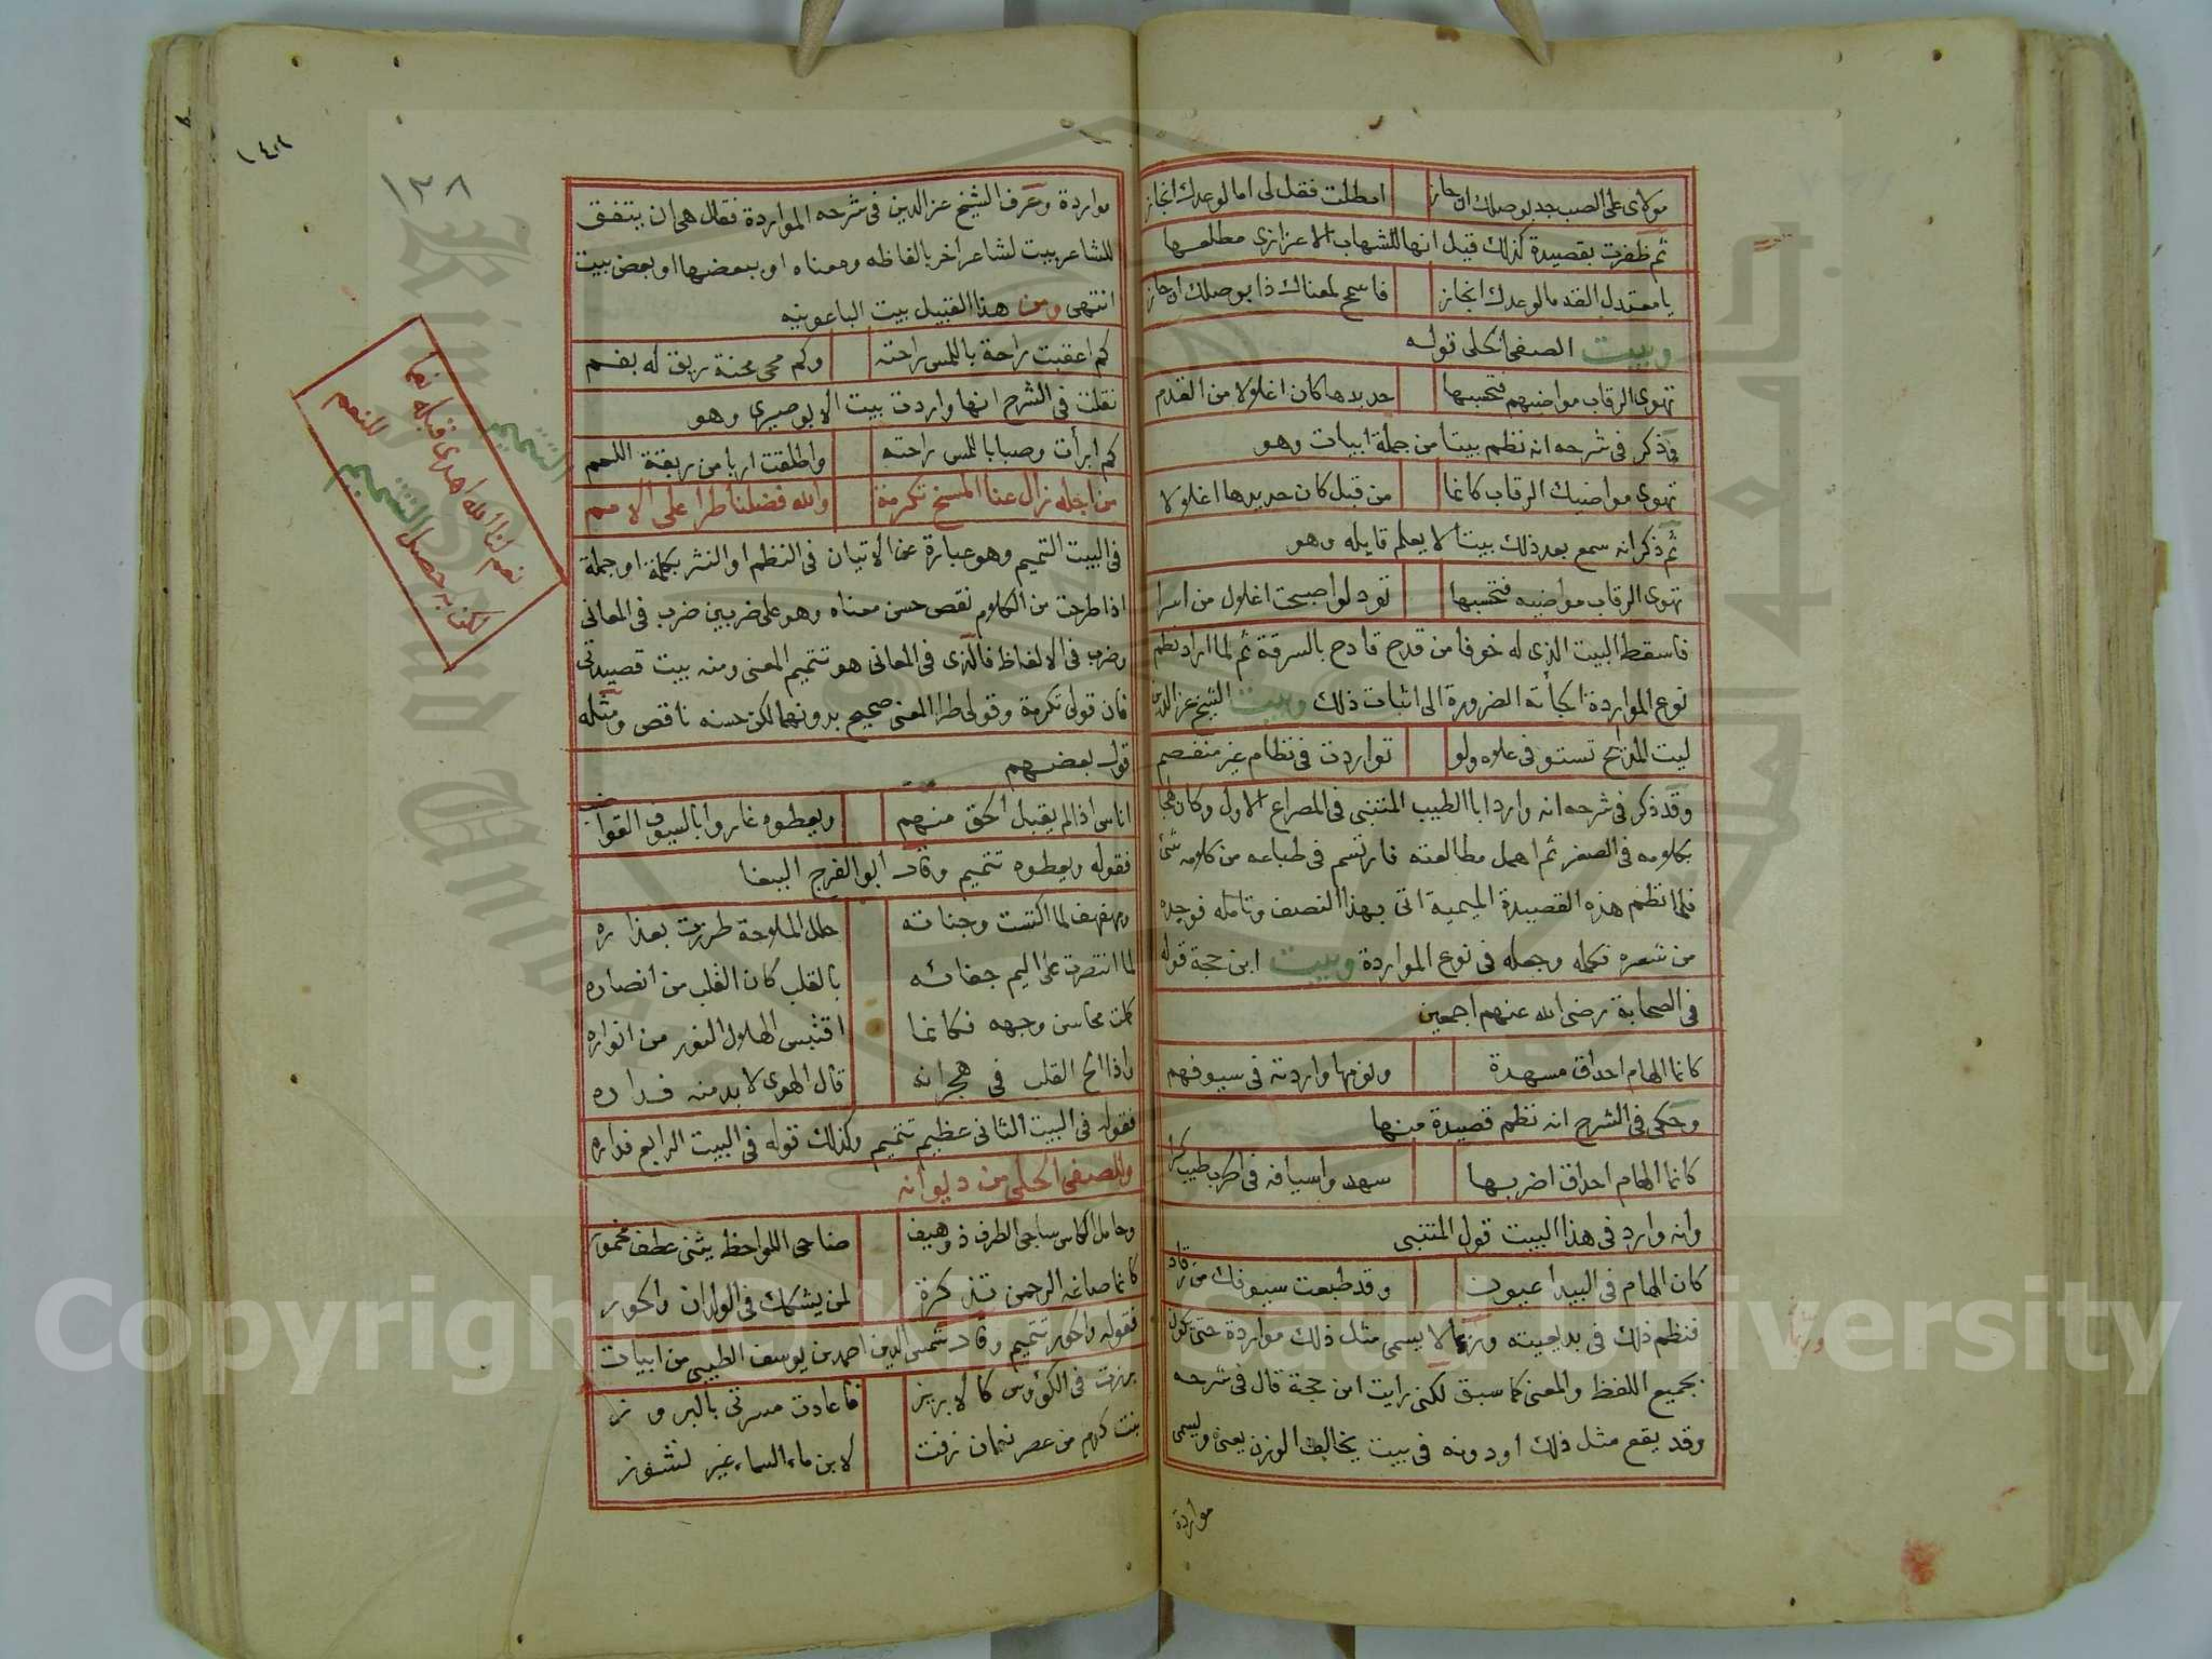 مولاى على الصب جد بوصلك ان جاز امطلت فقل لى اما لوعدك انجاز
ثم ظفرت بقصيدة كذلك قيل انها للشهاب الاعزازى مطلعها
يا معتدل القد ما لوعدك انجاز فاسمح لمعناك ذا بوصلك ان جاز
وبيت الصفى الحلى قوله
تهوى الرقاب مواضيهم فتحسبها حديدها كان اغلالا من القدم
وذكر فى شرحه انه نظم بيتا من جملة ابيات وهو
تهوى مواضيك الرقاب كانما من قبل كان حديدها اغلالا
ثم ذكر انه سمع بعد ذلك بيتا لا يعلم قايله وهو
تهوى الرقاب مواضيه فتحسبها تود لو اصبحت اغلال من اسرا
فاسقط البيت الذى له خوفا من قدح قادح بالسرقة ثم لما اراد نظم
نوع المواردة الجأته الضرورة الى اثبات ذلك وبيت الشيخ عز الدين
ليت المدائح تستوفى علاه ولو تواردت فى نظام غير منفصم
وقد ذكر فى شرحه انه وارد ابا الطيب المتنبى فى المصراع الاول وكان لهجا
بكلامه فى الصغر ثم اهمل مطالعته فارتسم فى طباعه من كلامه شئ
فلما نظم هذه القصيدة الميمية اتى بهذا النصف وتامله فوجده
من شعره فكمله وجعله فى نوع المواردة وبيت ابن حجة قوله
فى الصحابة رضى الله عنهم اجمعين
كانما الهام احداق مسهدة ونومها واردته فى سيوفهم
وحكى فى الشرح انه نظم قصيدة منها
كانما الهام احداق اضر بها سهد واسيافه فى الحرب طيب كرا
وانه وارد فى هذا البيت قول المتنبى
كان الهام فى البيدا عيون وقد طبعت سيوفك من رقاد
فنظم ذلك فى بديعيته وربما لا يسمى مثل ذلك مواردة حتى يكون
بجميع اللفظ والمعنى كما سبق لكنى رايت ابن حجة قال فى شرحه
وقد يقع مثل ذلك او دونه فى بيت يخالف الوزن يعنى ويسمى
مواردة
وربما
مواردة وعرف الشيخ عز الدين فى شرحه المواردة فقال هى ان يتفق
للشاعر بيت لشاعر اخر بالفاظه ومعناه او ببعضها او بعض بيت
انتهى ومن هذا القبيل بيت الباعونيه
كم اعقبت راحة باللمس راحته وكم محى محنة ريق له بفم
نقلت فى الشرح انها واردت بيت الابوصيرى وهو
كم ابرأت وصبا باللمس راحته واطلقت اربا من ربقة اللمم
من اجله زال عنا المسخ تكرمة والله فضلنا طرا على الامم
فى البيت التتميم وهو عبارة عن الاتيان فى النظم او النثر بكلمة او جملة
اذا طرحت من الكلام نقص حسن معناه وهو على ضربين ضرب فى المعانى
وضرب فى الالفاظ فالذى فى المعانى هو تتميم المعنى ومنه بيت قصيدتى
فان قولى تكرمة وقولى طرا المعنى صحيح بدونهما لكن حسنه ناقص ومثله
قول بعضهم
اناس اذا لم يقبل الحق منهم ويعطوه غاروا بالسيوف القواضب
فقوله ويعطوه تتميم وقال ابو الفرج الببغا
ومهفهف لما اكتست وجناته حلل الملاحة طرزت بعذاره
لما انتصرت على اليم جفائه بالقلب كان القلب من انصاره
كملت محاسن وجهه فكانما اقتبس الهلال النور من انواره
واذا الح القلب فى هجرانه قال الهوى لا بد منه فداره
فقوله فى البيت الثانى عظيم تتميم وكذلك قوله فى البيت الرابع فداره
وللصفى الحلى من ديوانه
وحامل الكاس ساجى الطرف ذو هيف صاحى اللواحظ يثنى عطف مخمور
كانما صاغه الرحمن تذكرة لمن يشكك فى الولدان والحور
فقوله والحور تتميم وقال شمس الدين احمد بن يوسف الطيبى من ابيات
برزت فى الكؤوس كالابريز فاعادت مسرتى بالبروز
بنت كرم من عصر نعمان زفت لابن ماء السماء غير نشوز
التتميم
نعم لنا الله اهدى قبله نعما
لكن به حصل التتميم للنعم
١٣٨
Copyright © King Saud University